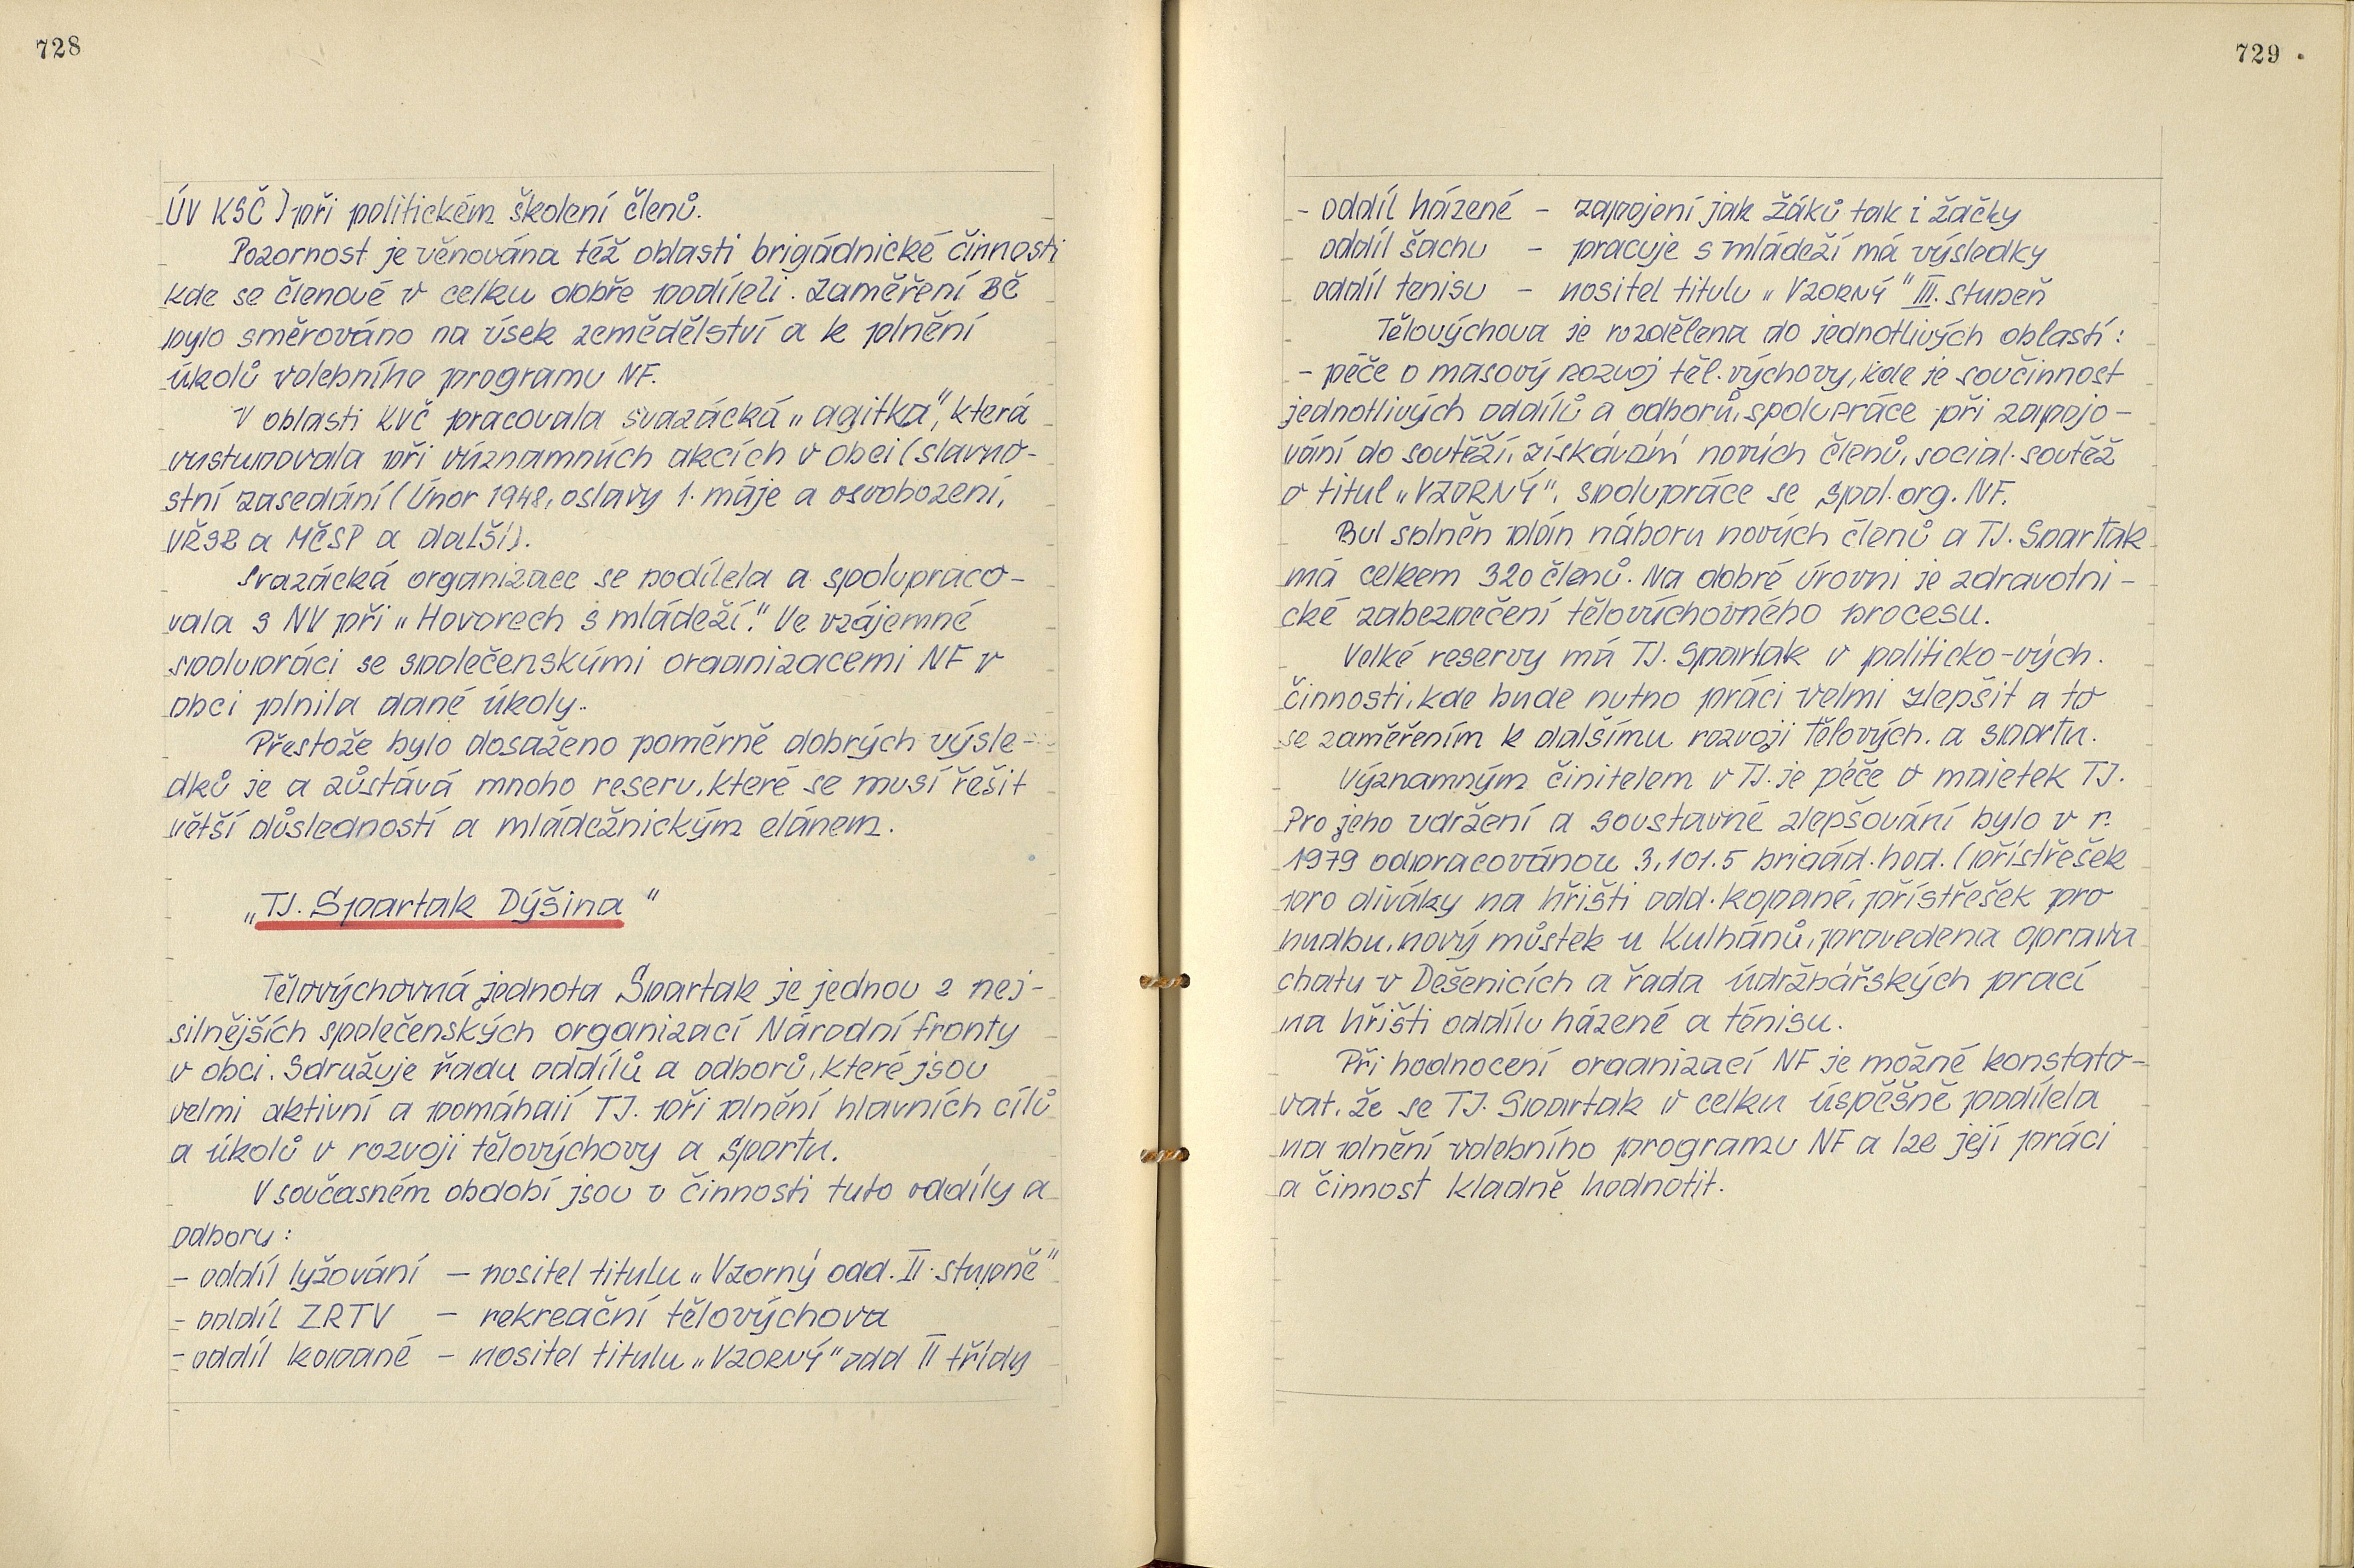 728
ÚV KSČ) při politickém školení členů.
Pozornost je věnována též oblasti brigádnické činnosti
kde se členové v celku dobře podíleli. Zaměření BČ
bylo směrováno na úsek zemědělství a k plnění
úkolů volebního programu NF.
V oblasti KVČ pracovala svazácká „agitka", která
vystupovala při významných akcích v obci (slavno-
stní zasedání (Únor 1948, oslavy 1. máje a osvobození,
VŘSR a MČSP a další).
Svazácká organizace se podílela a spolupraco-
vala s NV při „Hovorech s mládeží." Ve vzájemné
spolupráci se společenskými organizacemi NF v
obci plnila dané úkoly.
Přestože bylo dosaženo poměrně dobrých výsle-
dků je a zůstává mnoho reserv, které se musí řešit
větší důsledností a mládežnickým elánem.
„TJ. Spartak Dýšina"
Tělovýchovná jednota Spartak je jednou z nej-
silnějších společenských organizací Národní fronty
v obci. Sdružuje řadu oddílů a odborů, které jsou
velmi aktivní a pomáhají TJ. při plnění hlavních cílů
a úkolů v rozvoji tělovýchovy a sportu.
V současném období jsou v činnosti tyto oddíly a
odbory:
- oddíl lyžování – nositel titulu „Vzorný odd. II. stupně"
- oddíl ZRTV – rekreační tělovýchova
- oddíl kopané – nositel titulu „VZORNÝ" odd II třídy
729
- oddíl házené – zapojení jak žáků tak i žačky
oddíl šachu – pracuje s mládeží má výsledky
oddíl tenisu – nositel titulu „VZORNÝ" III. stupeň
Tělovýchova je rozdělena do jednotlivých oblastí:
- péče o masový rozvoj těl. výchovy, kde je součinnost
jednotlivých oddílů a odborů, spolupráce při zapojo-
vání do soutěží, získávání nových členů, social. soutěž
o titul „VZORNÝ", spolupráce se spol. org. NF.
Byl splněn plán náboru nových členů a TJ. Spartak
má celkem 320 členů. Na dobré úrovni je zdravotni-
cké zabezpečení tělovýchovného procesu.
Velké reservy má TJ. Spartak v politicko-vých.
činnosti, kde bude nutno práci velmi zlepšit a to
se zaměřením k dalšímu rozvoji tělových. a sportu.
Významným činitelem v TJ. je péče o majetek TJ.
Pro jeho udržení a soustavné zlepšování bylo v r.
1979 odpracovánou 3.101.5 brigád. hod. (přístřešek
pro diváky na hřišti odd. kopané, přístřešek pro
hudbu, nový můstek u Kulhánů, provedena oprava
chaty v Dešenicích a řada údržbářských prací
na hřišti oddílu házené a ténisu.
Při hodnocení organizací NF je možné konstato-
vat, že se TJ. Spartak v celku úspěšně podílela
na plnění volebního programu NF a lze její práci
a činnost kladně hodnotit.